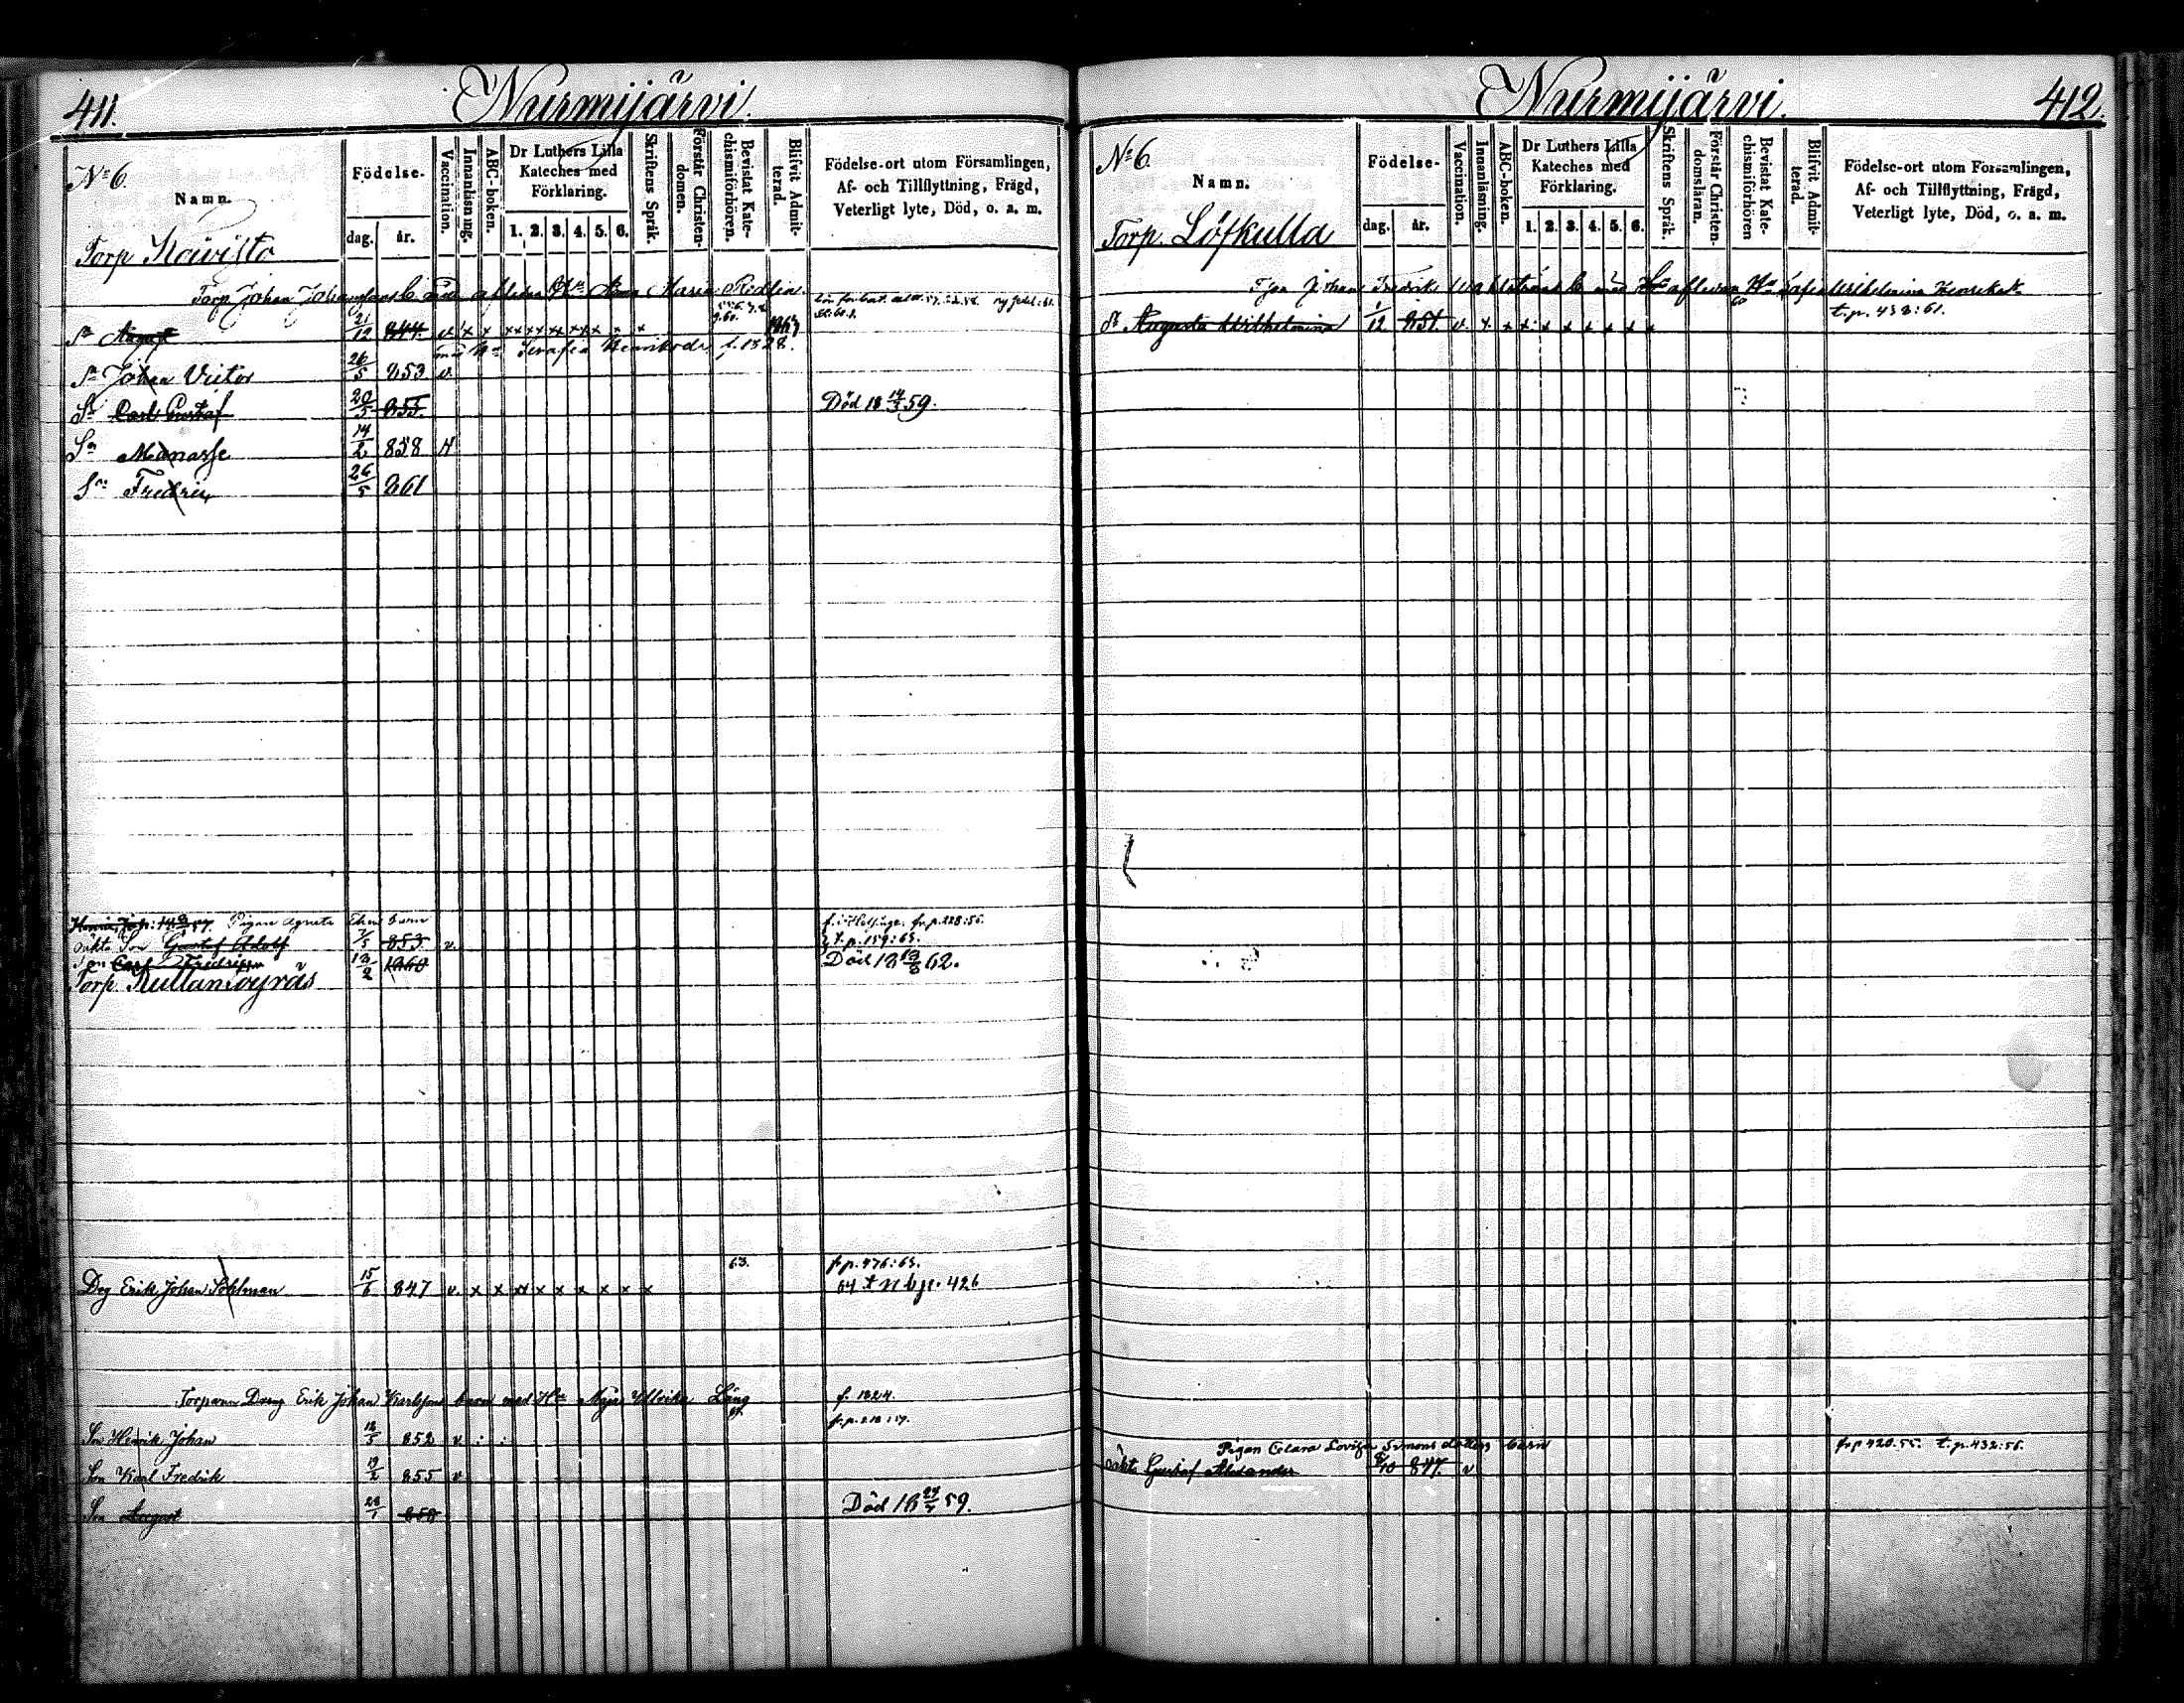 411. Nurmijärvi.
No 6.
Namn.
Födelse-
dag. år.
Vaccination.
Innanläsning.
ABC-boken.
Dr Luthers Lilla Kateches med Förklaring.
1. 2. 3. 4. 5. 6.
Skriftens Språk.
Förstår Christendomen.
Bevistat Katechismiförhören.
Blifvit Admitterad.
Födelse-ort utom Församlingen,
Af- och Tillflyttning, Frägd,
Veterligt lyte, Död, o. a. m.
Torp Koivisto
Torp. Johan Johansson b. med afledna Hu Anna Maria Redlin.
Sn August 21/12 844 v x x xx xx xx xx x x x 1863
med Hu Serafia Henriksdr f. 1828.
Sn Johan Victor 26/5 853. v.
Sn Carl Gustaf 20/5 855. Död 18 59.
Sn Manasse 14/2 858
Sn Fredric 26/5 861
Pigan Agneta barn fr. p. 228:55.
oäkta Son Gustaf Adolf 7/5 853 v. t. p. 159:63.
Son Carl Fredrik 12/2 1860 Död 18 62.
Torp Kullansyrjäs
63. fr p. 476:63.
Dvg Erik Johan Sohlman 15/6 847 v. x x xx x x x x x x 64 t n b p. 426
Torparen Dräng Erik Johan Karlssons barn med Hu Maja Ulrika Lång f. 1824.
fr. p. 218:57.
Son Henrik Johan 12/5 852 v : :
Son Karl Fredrik 19/2 855 v
Son August 850 Död 18 59.
Nurmijärvi. 412.
No 6
Namn.
Födelse-
dag. år.
Vaccination.
Innanläsning.
ABC-boken.
Dr Luthers Lilla Kateches med Förklaring.
1. 2. 3. 4. 5. 6.
Skriftens Språk.
Förstår Christendomsläran.
Bevistat Katechismiförhören
Blifvit Admitterad.
Födelse-ort utom Forsamlingen,
Af- och Tillflyttning, Frägd,
Veterligt lyte, Död, o. a. m.
Torp. Löfkulla
Johan Fredrik b med afledna Hu Wilhelmina
60 t. p. 438:61.
Dr Augusta Wilhelmina 1/12 851. v. x. x x x x x x x x
Pigan Clara Lovisa Simonsdotters barn fr p 420:55. t. p. 432:56.
oäkta Gustaf Alexander 847. v